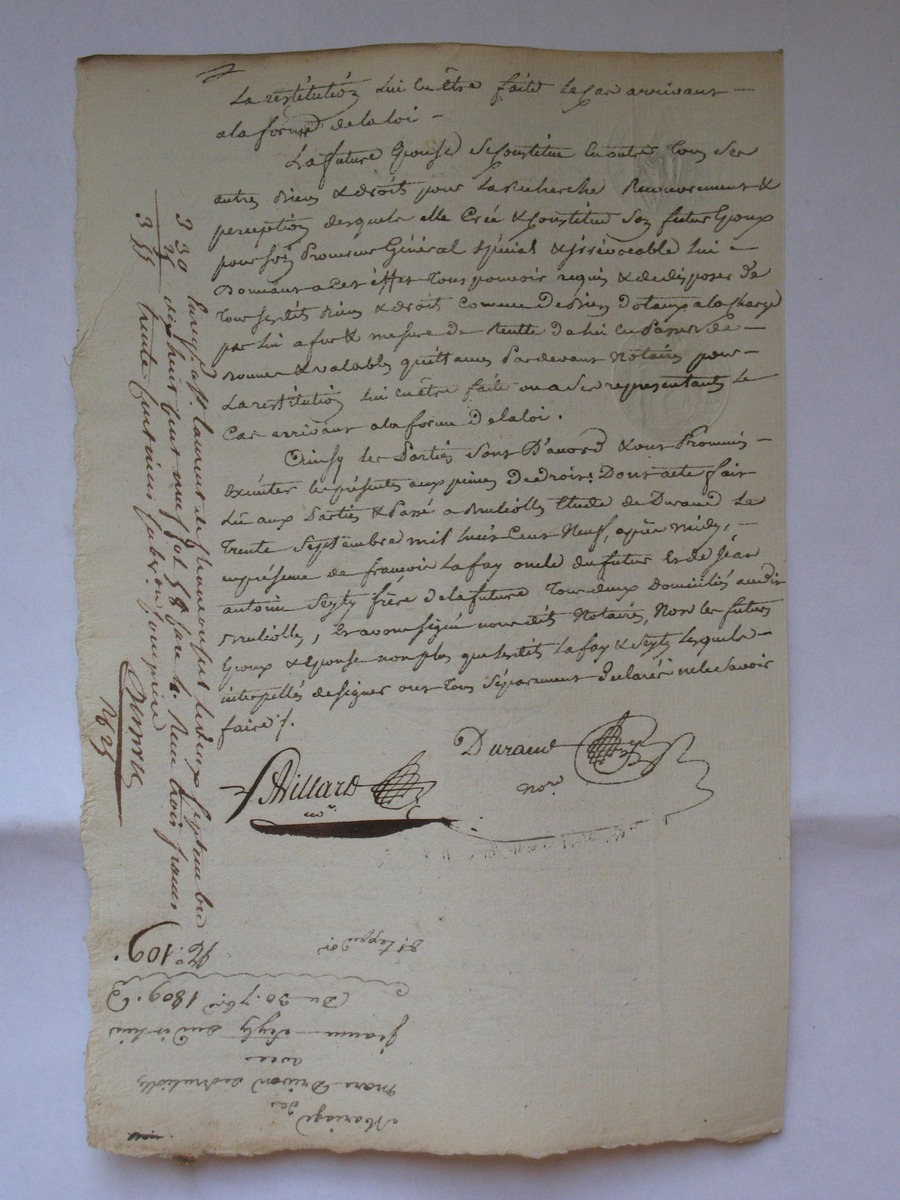 La restitution lui en être faite le cas arrivant —
a la forme de la loi —
La future Epouse se Constitue en outre tous ses
autres Biens & droits pour la Recherche Recouvrement &
perception desquels elle Crée & Constitue son futur Epoux
pour son Procureur Général spécial & irrévocable lui —
Donnant a cet effet tous pouvoir requis & de disposer de
tous sesdits Biens & droits Comme de Biens dotaux a la charge
par lui a fur & mesure de Reütte de lui en Passer de —
Bonnes & valables quittances Pardevant Notaires pour —
La restitution lui en être faite ou a ses representants Le
Cas arrivant a la forme de la loi .
Ainsy les Parties sont D'accord & ont Promis —
Exécuter les présentes aux peines de droit. Dont acte fait
Lu aux Parties & Passé a Brullioles Etude de Durand Le
Trente Septembre mil huit Cent Neuf, après midy, —
en présence de françois Lafay oncle du futur et de Jean
antoine Seyty frère de la future tous deux Domiciliés audit
Brullioles, & avons signé nousdits Notaires, Non les futurs
Epoux & Epouse non plus que lesdits Lafay & Seyty lesquels —
interpellés de signer ont tous séparément Déclaré ne le savoir
faire /.
Durand
nore.
Villard
nore.
3 30
33
3 63
Enregé. a St. laurent de Chamousset le deux Septembre
dix huit cent neuf fol 58 Reçu trois francs
trente trois centimes subvon. comprise
N 25
No. 109.
Du 30. 7bre 1809.
Mariage
des
Marc Drivon de Brullioles
avec
Jeanne Seyty dudit lieu